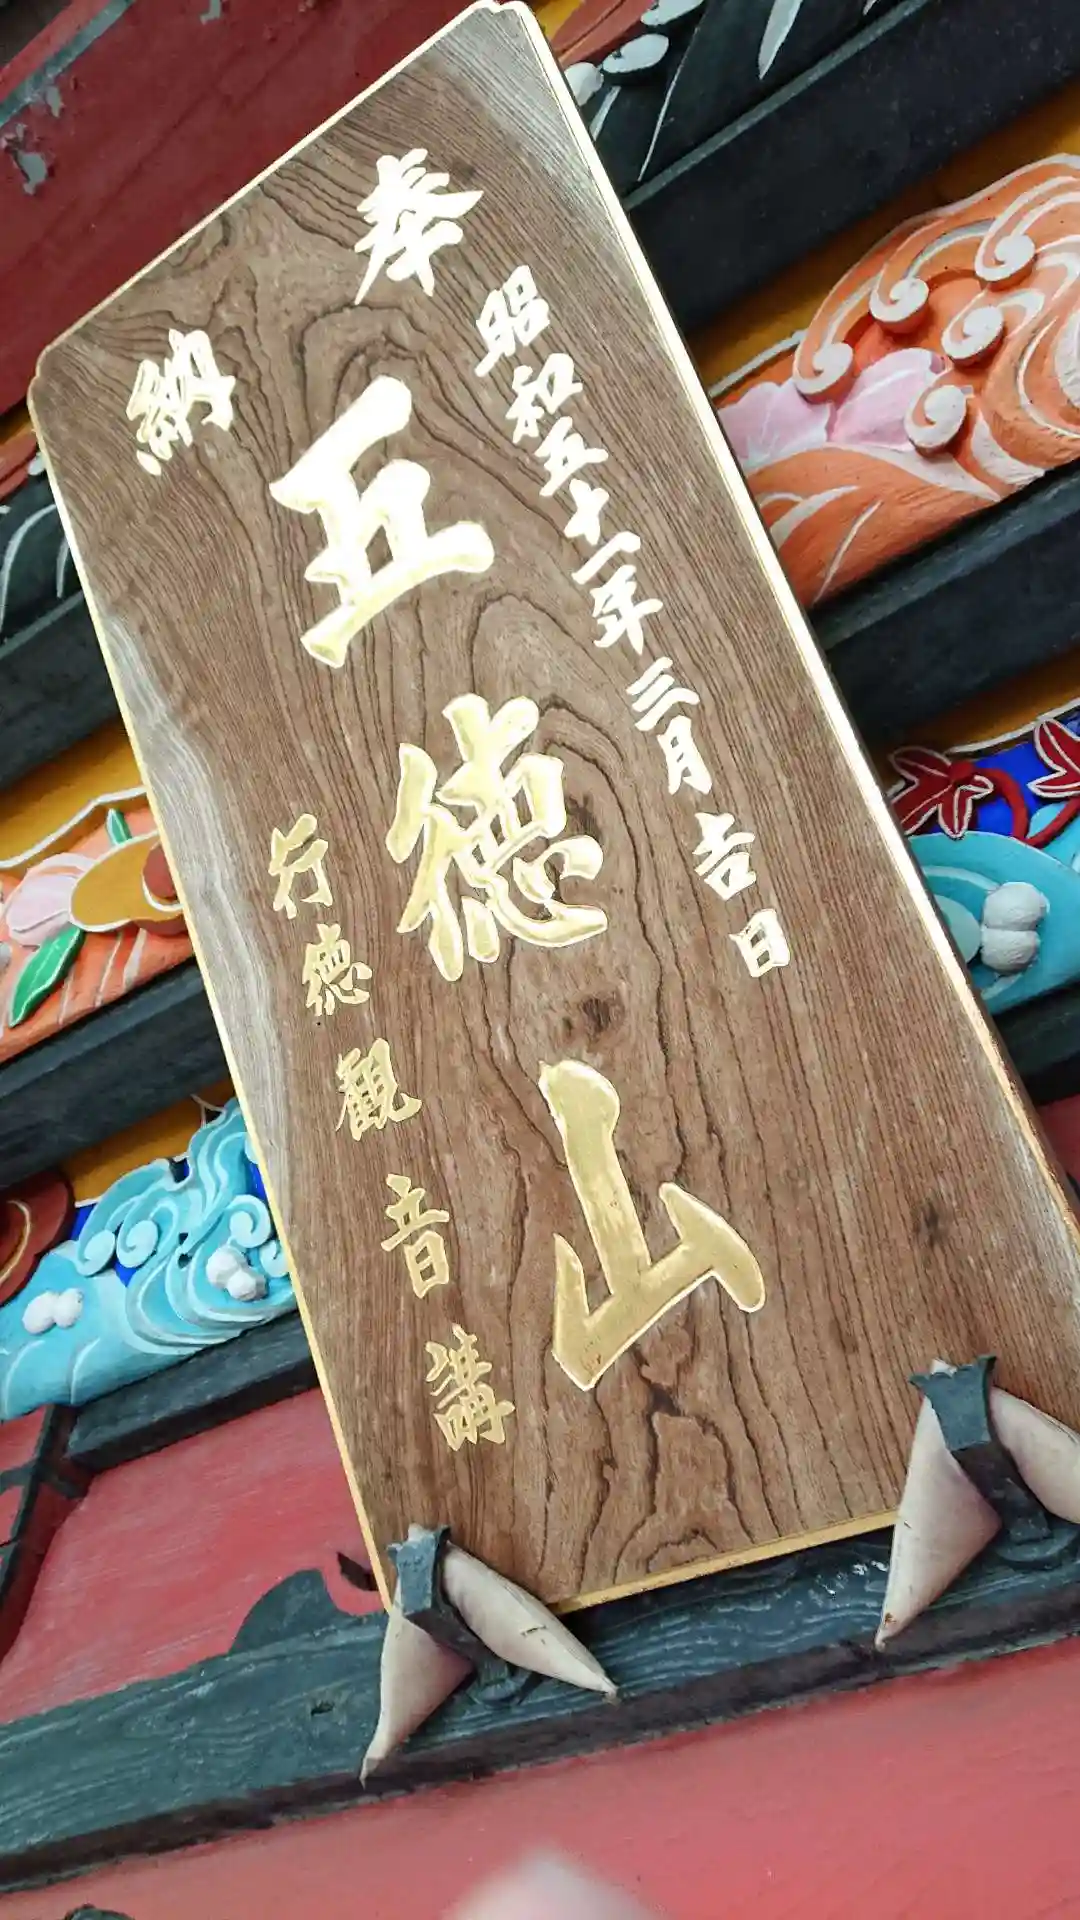 奉納
昭和五十一年三月吉日
五徳山
行徳観音講